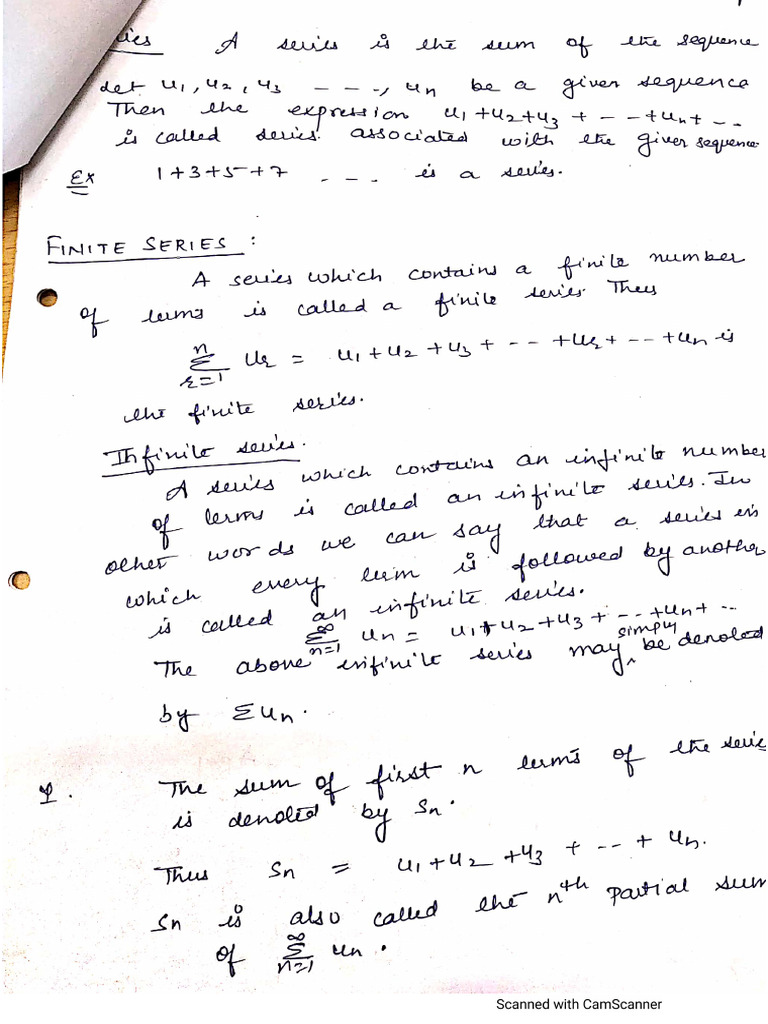 ies A series is the sum of the sequence
Let u₁, u₂, u₃ - - - -, uₙ be a given sequence
Then the expression u₁+u₂+u₃ + - - +uₙ+ - -
is called series associated with the given sequence
Ex 1+3+5+7 - - - is a series.
FINITE SERIES :
A series which contains a finite number
of terms is called a finite series. Thus
n
Σ uᵣ = u₁+u₂+u₃+ - - +uᵣ+ - - +uₙ is
r=1
the finite series.
Infinite series.
A series which contains an infinite number
of terms is called an infinite series. In
other words we can say that a series in
which every term is followed by another
is called an infinite series.
∞
Σ uₙ = u₁+u₂+u₃+ - - +uₙ+ - -
n=1
The above infinite series may simply be denoted
by Σuₙ.
The sum of first n terms of the serie
is denoted by Sₙ.
Thus Sₙ = u₁+u₂+u₃ + - - + uₙ.
Sₙ is also called the nᵗʰ partial sum
∞
of Σ uₙ.
n=1
Scanned with CamScanner